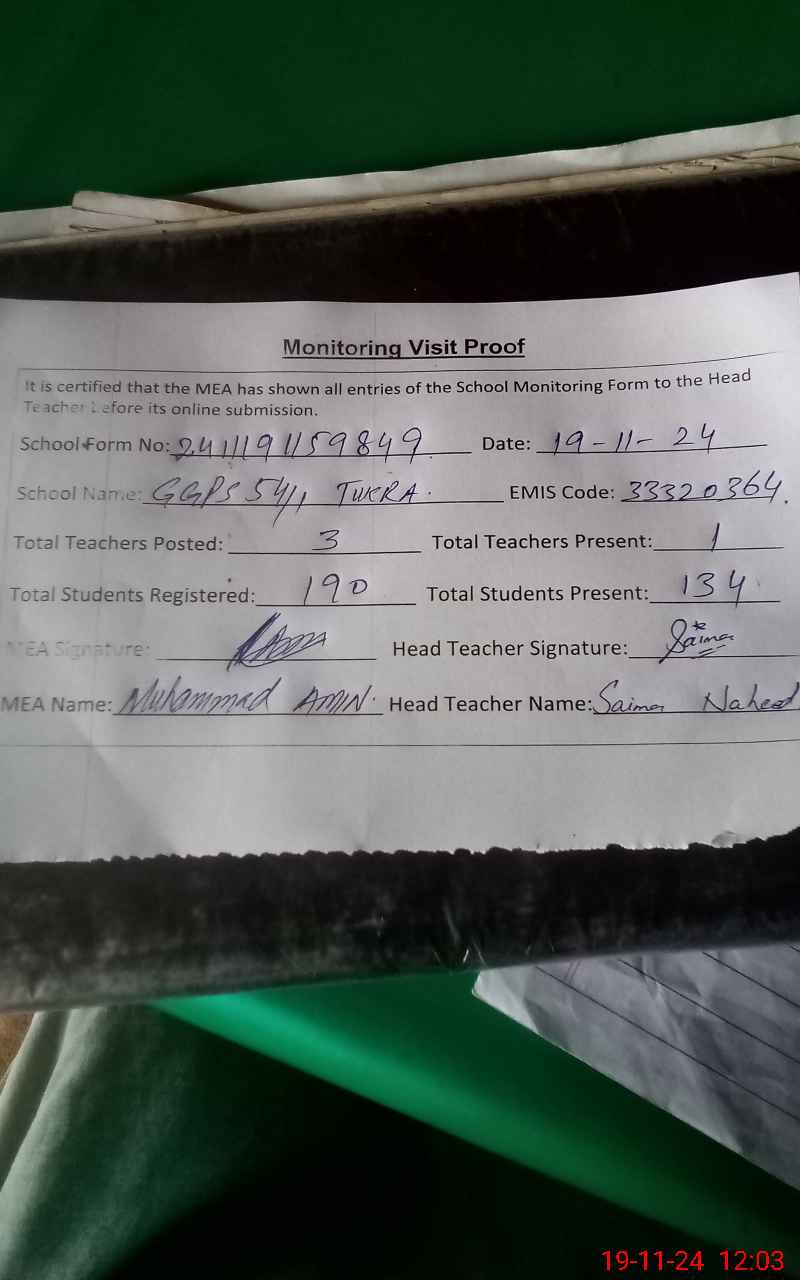 Monitoring Visit Proof
It is certified that the MEA has shown all entries of the School Monitoring Form to the Head
Teacher before its online submission.
School Form No: 2411191159849 Date: 19-11-24
School Name: GGPS 54/1 TUKRA. EMIS Code: 33320364.
Total Teachers Posted: 3 Total Teachers Present: 1
Total Students Registered: 190 Total Students Present: 134
MEA Signature: Head Teacher Signature: Saima
MEA Name: Muhammad AMIN. Head Teacher Name: Saima Naheed
19-11-24 12:03